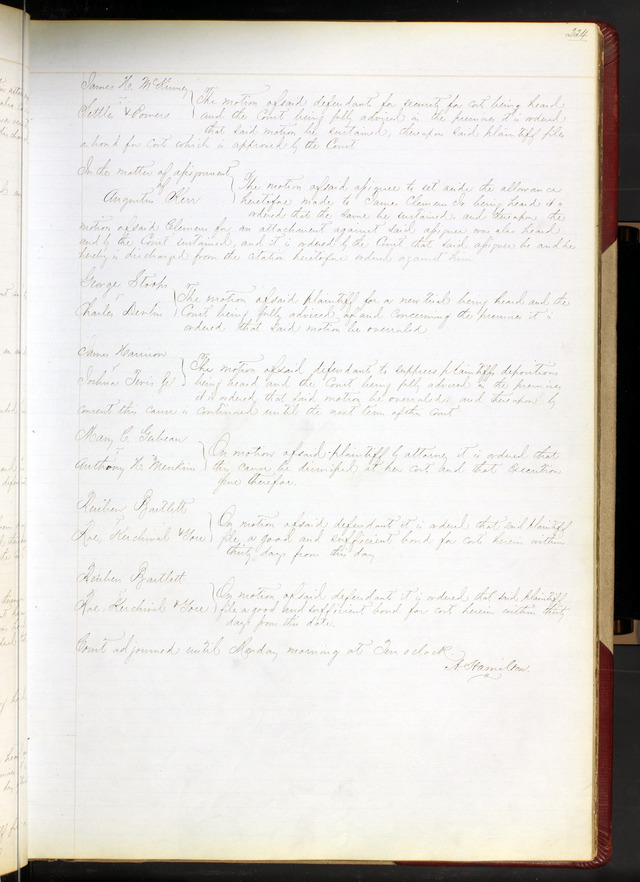 224
James H. McKinney
vs
Settle & Powers
The motion of said defendant for security for cost being heard
and the Court being fully advised in the premises it is ordered
that said motion be sustained, thereupon said plaintiff files
a bond for cost which is approved by the Court
In the matter of assignment
of
Augustin Kerr
The motion of said assignee to set aside the allowance
heretofore made to James Clemens Jr being heard it is
ordered that the same be sustained, and thereupon the
motion of said Clemens for an attachment against said assignee was also heard
and by the Court sustained, and it is ordered by the Court that said assignee be and he
hereby is discharged from the citation heretofore ordered against him
George Stoops
v
Charles Devlin
The motion of said plaintiff for a new trial being heard and the
Court being fully advised of and concerning the premises it is
ordered that said motion be overruled
James Harrison
v
Joshua Tevis
The motion of said defendants to suppress plaintiffs depositions
being heard and the Court being fully advised in the premises
it is ordered that said motion be overruled, and thereupon by
consent this cause is continued until the next term of this Court
Mary C.
v
Anthony W.
On motion of said plaintiff by attorney it is ordered that
this cause be dismissed at her cost and that Execution
issue therefor.
Reuben Bartlett
v
Rae, Kerchival &
On motion of said defendant it is ordered that said plaintiff
file a good and sufficient bond for cost herein within
thirty days from this day
Reuben Bartlett
v
Rae Kerchival &
On motion of said defendant it is ordered that said plaintiff
file a good and sufficient bond for cost herein within thirty
days from this date.
Court adjourned until Monday morning at Ten oclock
A. Hamilton